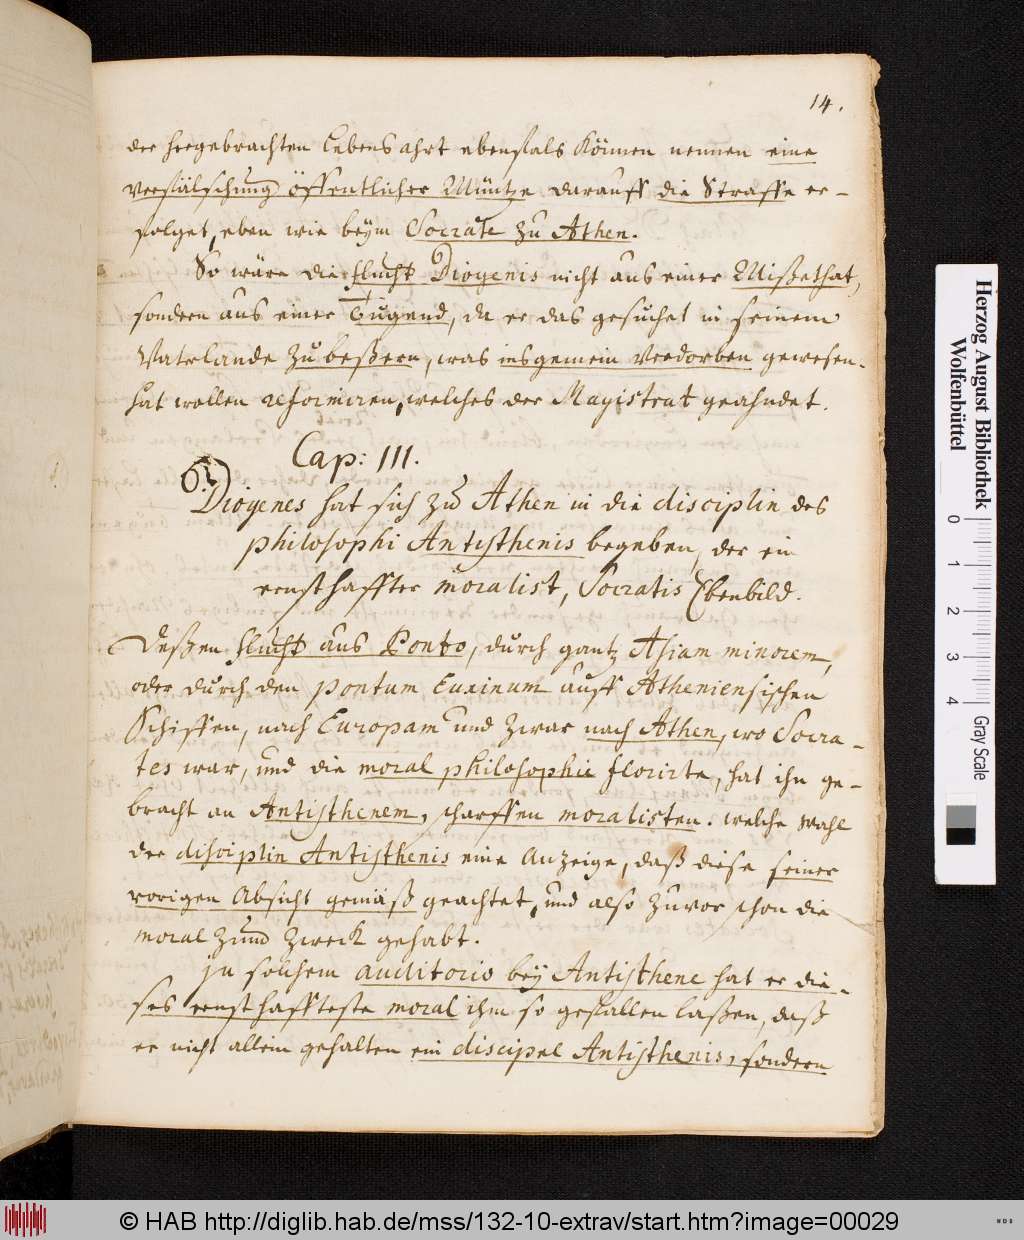 14.
der hergebrachten Lebensahrt ebenfals können nennen eine
verfälschung öffentlicher Müntze darauff die Straffe er-
folget, eben wie beym Socrate zu Athen.
So wäre die flucht Diogenis nicht aus einer Mißethat,
sondern aus einer Tugend, da er das gesuchet in seinem
Vaterlande zu beßern, was insgemein verdorben gewesen.
hat wollen reformiren, welches der Magistrat geahndet.
Cap: III.
Diogenes hat sich zu Athen in die disciplin des
philosophi Antisthenis begeben, der ein
ernsthaffter moralist, Socratis Ebenbild.
Deßen flucht aus Ponto, durch gantz Asiam minorem,
oder durch den pontum Euxinum auff Atheniensischen
Schiffen, nach Europam und zwar nach Athen, wo Socra-
tes war, und die moral philosophie florirte, hat ihn ge-
bracht an Antisthenem, scharffen moralisten. welche Wahl
der disciplin Antisthenis eine Anzeige, daß diese seiner
vorigen Absicht gemäß geachtet, und also zuvor schon die
moral zum Zweck gehabt.
In solchem auditorio bey Antisthene hat er die-
ses ernsthaffteste moral ihm so gefallen laßen, daß
er nicht allein gehalten ein discipel Antisthenis, sondern
Herzog August Bibliothek
Wolfenbüttel
0 1 2 3 4 Gray Scale
© HAB http://diglib.hab.de/mss/132-10-extrav/start.htm?image=00029